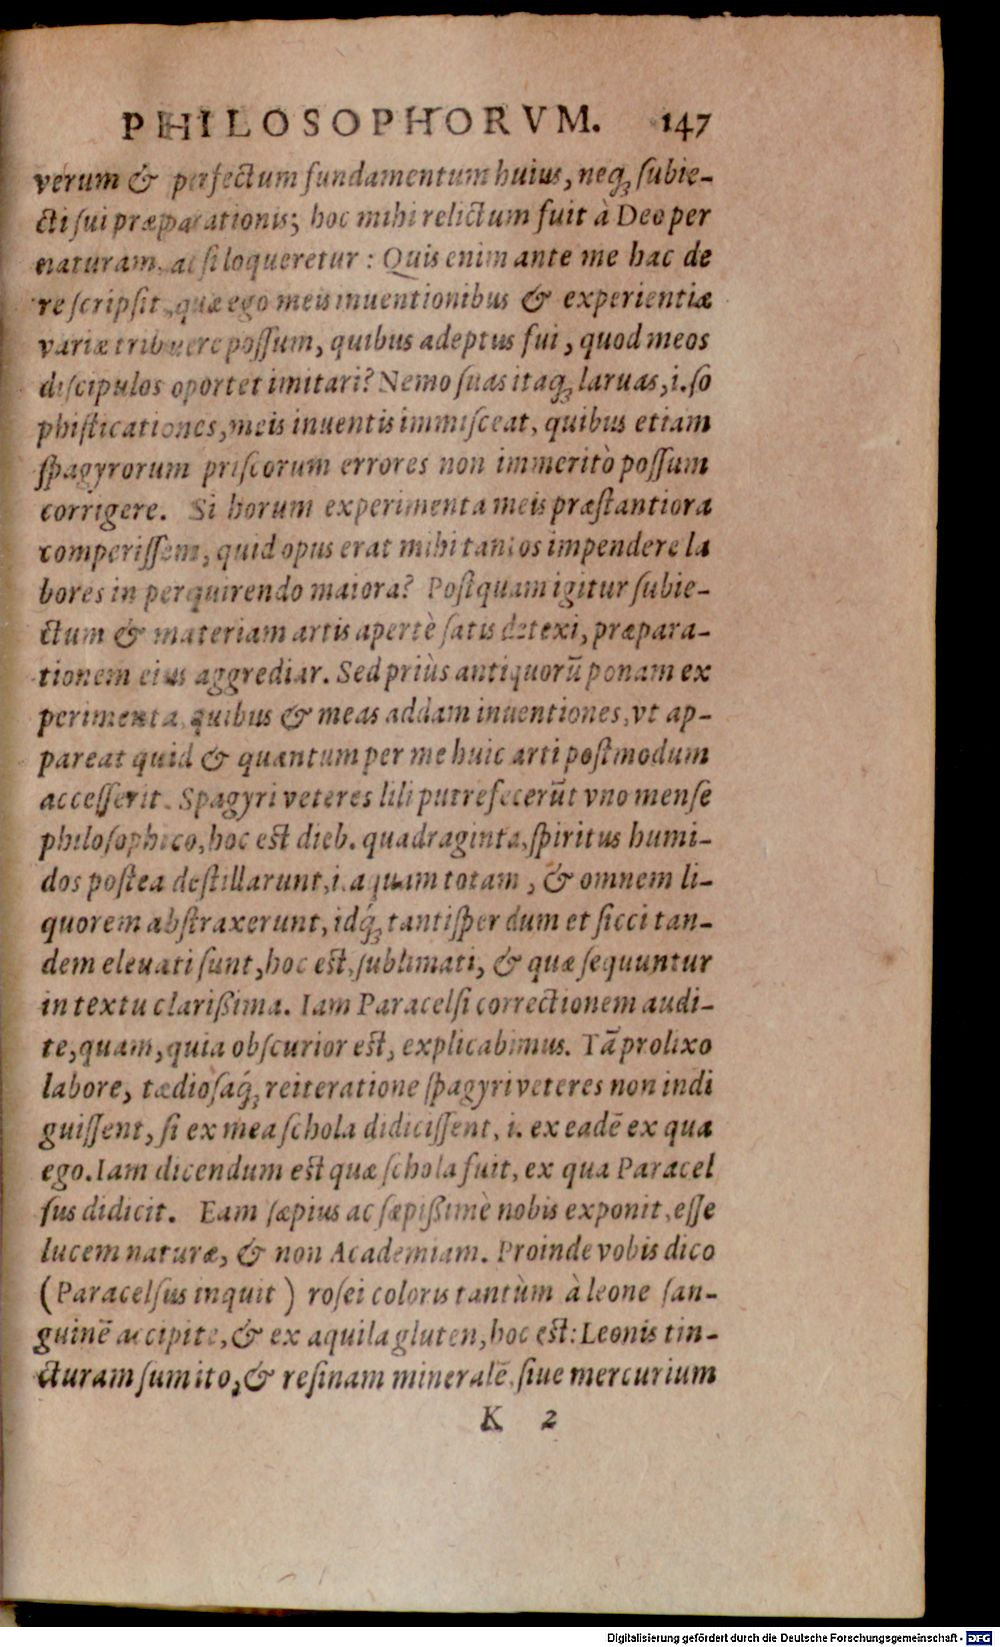 PHILOSOPHORVM. 147
verum & perfectum fundamentum huius, neq; subie-
cti sui præparationis; hoc mihi relictum fuit à Deo per
naturam, ac si loqueretur : Quis enim ante me hac de
re scripsit, quæ ego meis inuentionibus & experientiæ
variæ tribuere possum, quibus adeptus sui, quod meos
discipulos oportet imitari? Nemo suas itaq; laruas, i. so
phisticationes, meis inuentis immisceat, quibus etiam
spagyrorum priscorum errores non immeritò possum
corrigere. Si horum experimenta meis præstantiora
comperissem, quid opus erat mihi tantos impendere la
bores in perquirendo maiora? Postquam igitur subie-
ctum & materiam artis apertè satis detexi, præpara-
tionem eius aggrediar. Sed priùs antiquorũ ponam ex
perimenta, quibus & meas addam inuentiones, vt ap-
pareat quid & quantum per me huic arti postmodum
accesserit. Spagyri veteres lili putrefecerũt vno mense
philosophico, hoc est dieb. quadraginta, spiritus humi-
dos postea destillarunt, i. aquam totam, & omnem li-
quorem abstraxerunt, idq́; tantisper dum et sicci tan-
dem eleuati sunt, hoc est, sublimati, & quæ sequuntur
in textu clarißima. Iam Paracelsi correctionem audi-
te, quam, quia obscurior est, explicabimus. Tã prolixo
labore, tædiosaq́; reiteratione spagyri veteres non indi
guissent, si ex mea schola didicissent, i. ex eadẽ ex qua
ego. Iam dicendum est quæ schola fuit, ex qua Paracel
sus didicit. Eam sæpius ac sæpißimè nobis exponit, esse
lucem naturæ, & non Academiam. Proinde vobis dico
(Paracelsus inquit) rosei coloris tantùm à leone san-
guinẽ accipite, & ex aquila gluten, hoc est: Leonis tin-
cturam sumito, & resinam mineralẽ, siue mercurium
K 2
Digitalisierung gefördert durch die Deutsche Forschungsgemeinschaft - DFG